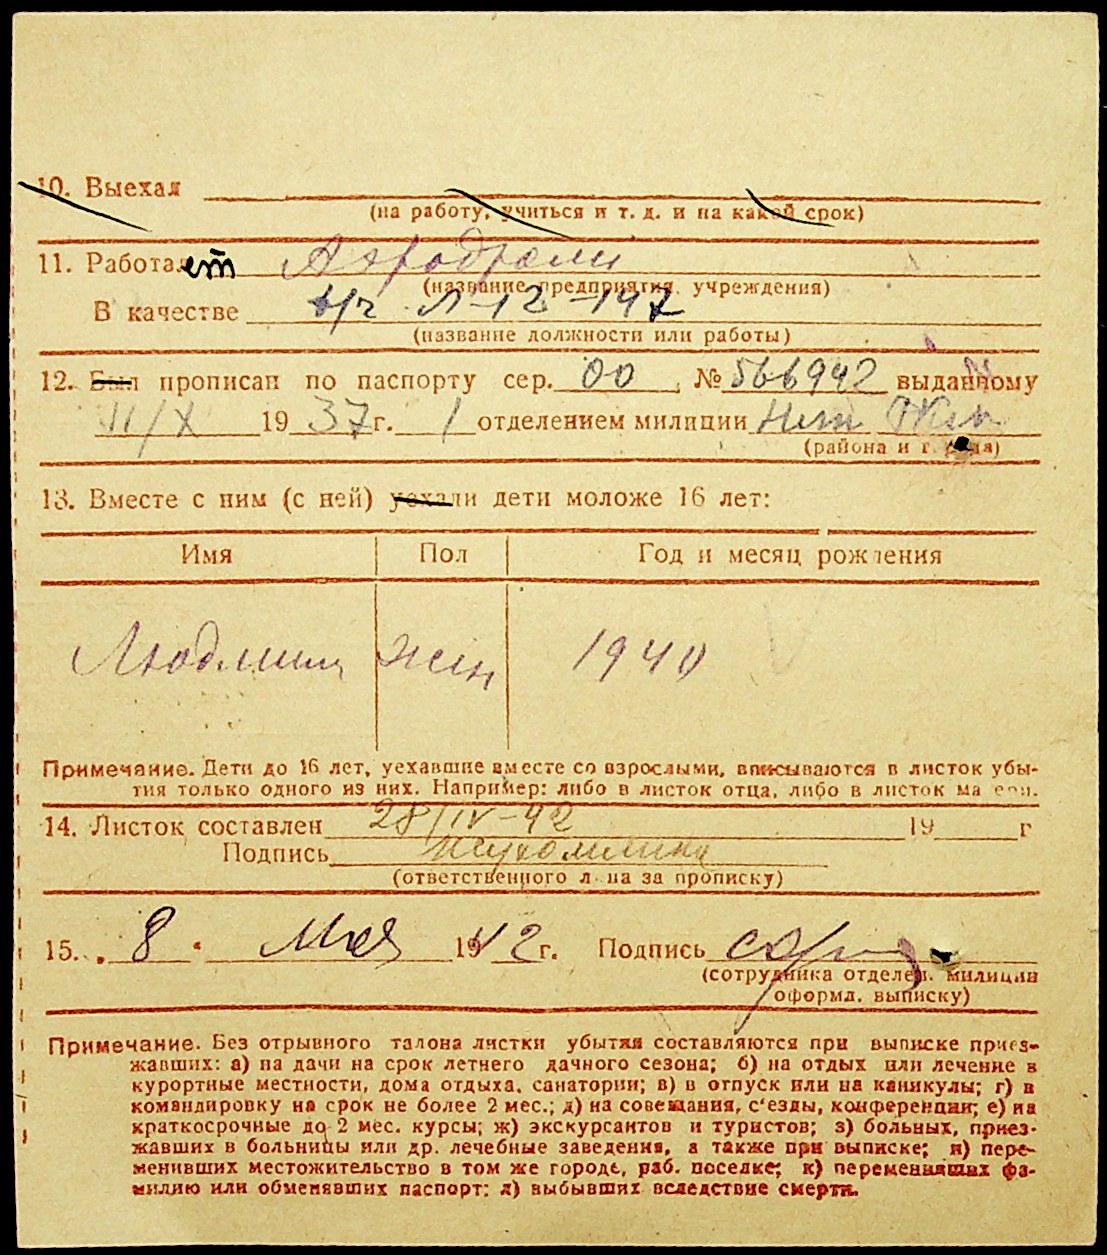 10. Выехал
(на работу, учиться и т. д. и на какой срок)
11. Работает Аэродром
(название предприятия, учреждения)
В качестве Л-12-147
(название должности или работы)
12. Был прописан по паспорту сер. 00, № 566942 выданному
II/X 1937г. 1 отделением милиции
(района и города)
13. Вместе с ним (с ней) уехали дети моложе 16 лет:
Имя Пол Год и месяц рождения
Людмила жен 1940
Примечание. Дети до 16 лет, уехавшие вместе со взрослыми, вписываются в листок убы-
тия только одного из них. Например: либо в листок отца, либо в листок матери.
14. Листок составлен 28/IV-42 19 г
Подпись
(ответственного лица за прописку)
15. „ 8 “ Мая 1942г. Подпись
(сотрудника отделен. милиции
оформл. выписку)
Примечание. Без отрывного талона листки убытия составляются при выписке приез-
жавших: а) на дачи на срок летнего дачного сезона; б) на отдых или лечение в
курортные местности, дома отдыха, санатории; в) в отпуск или на каникулы; г) в
командировку на срок не более 2 мес.; д) на совещания, с'езды, конференции; е) на
краткосрочные до 2 мес. курсы; ж) экскурсантов и туристов; з) больных, приез-
жавших в больницы или др. лечебные заведения, а также при выписке; и) пере-
менивших местожительство в том же городе, раб. поселке; к) переменивших фа-
милию или обменявших паспорт; л) выбывших вследствие смерти.